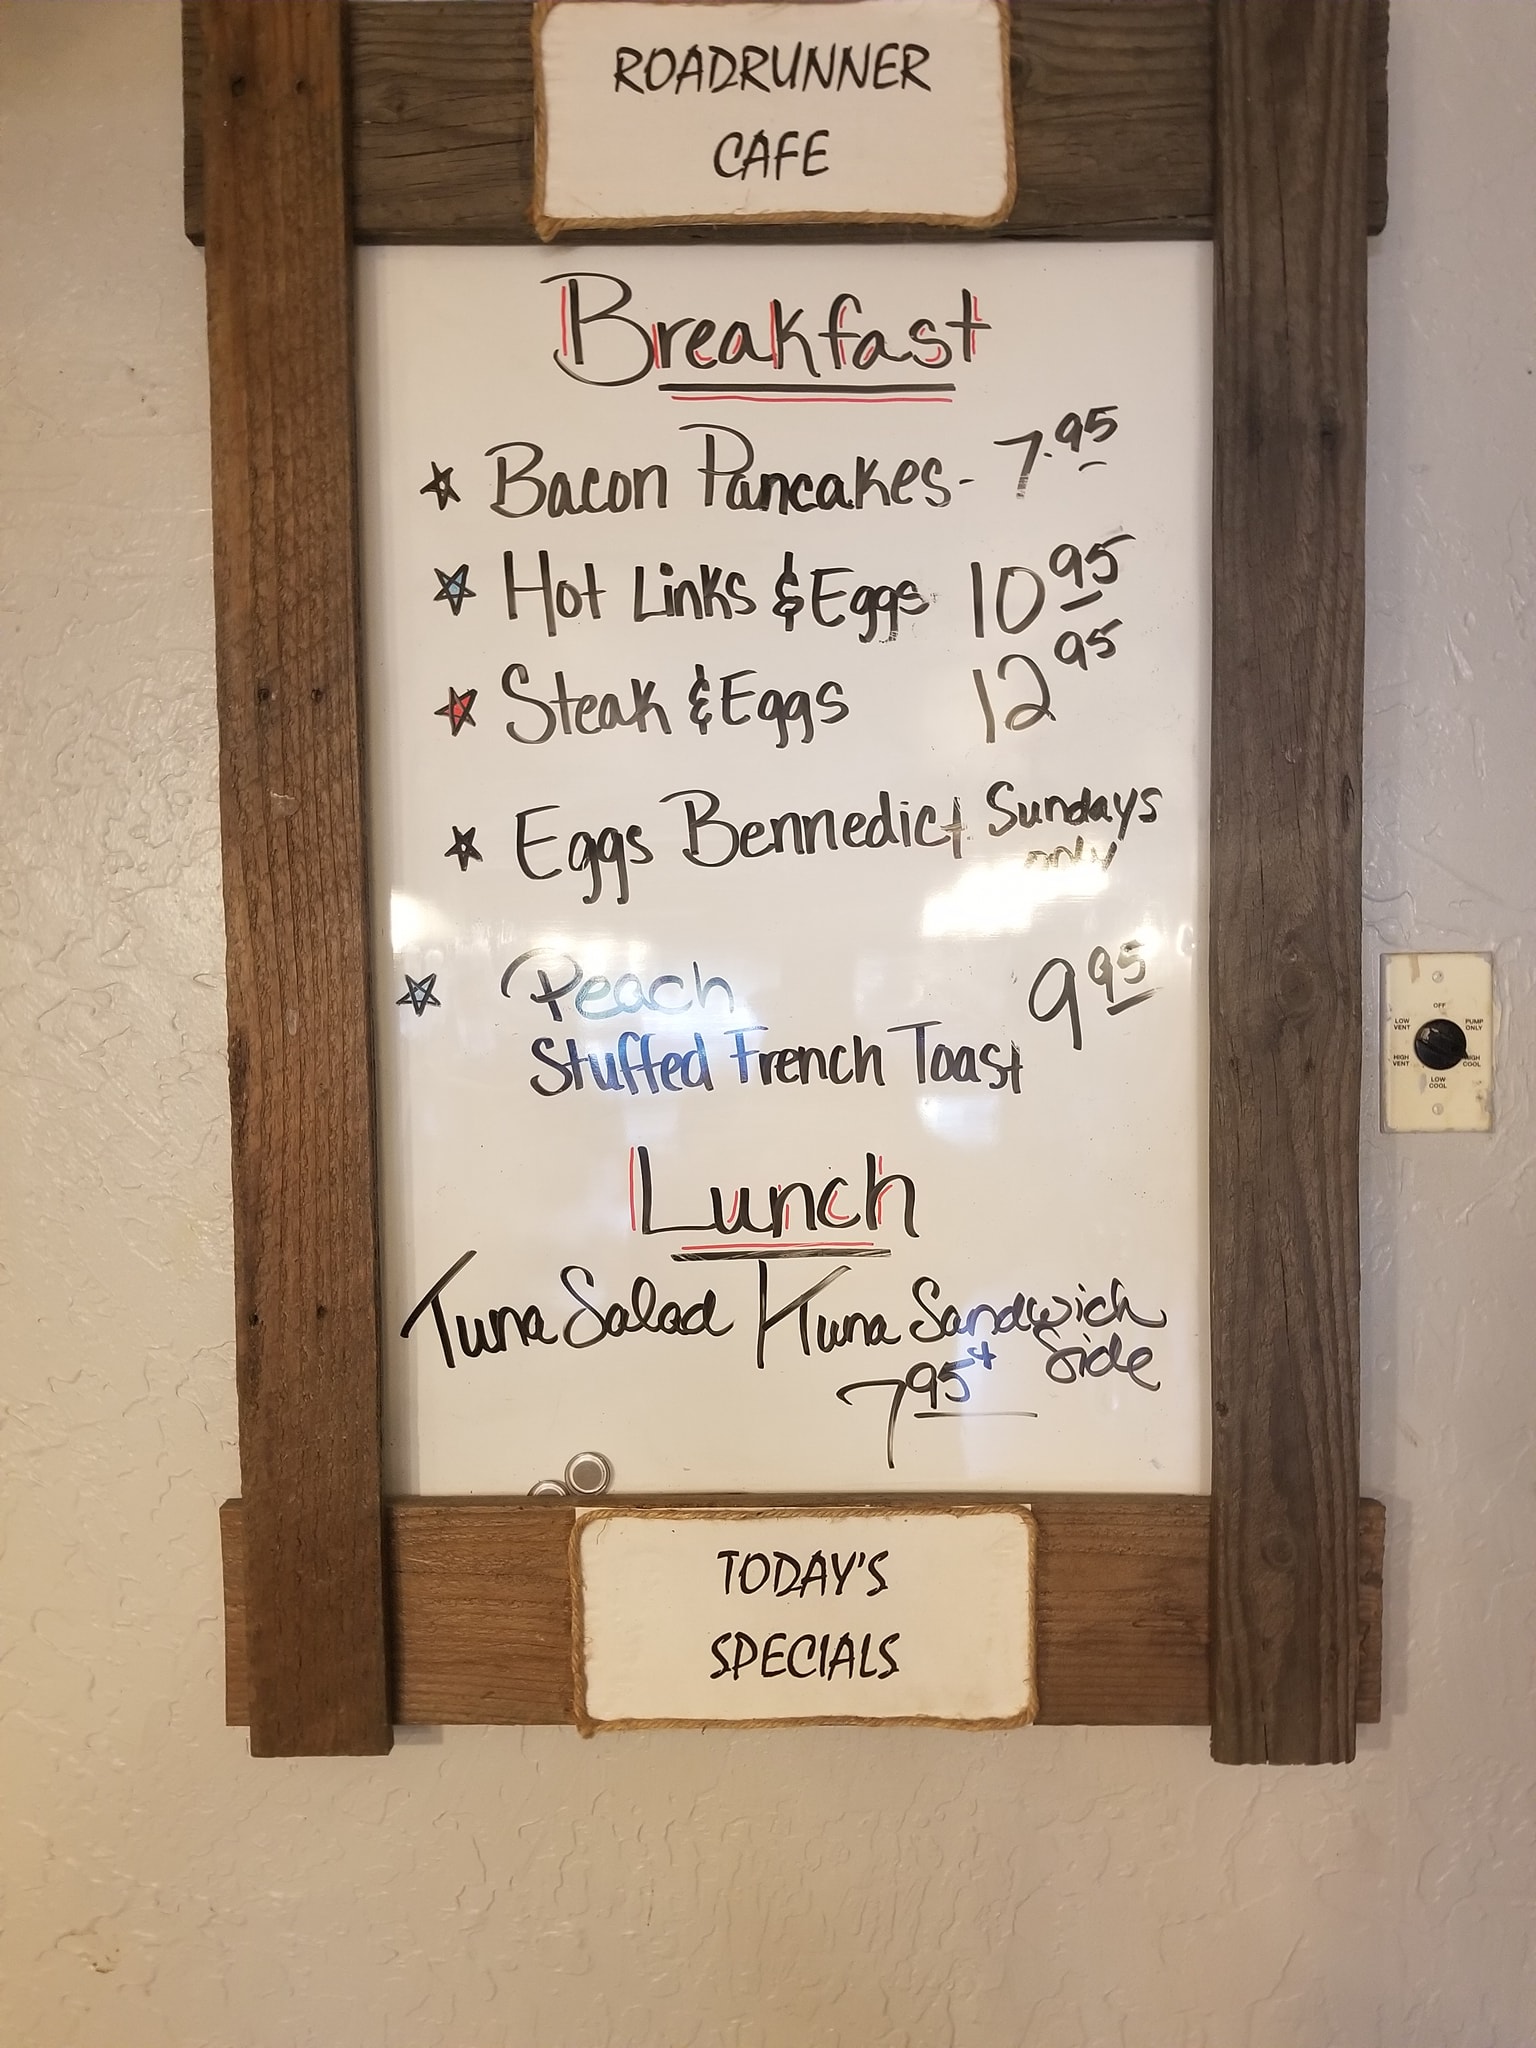 ROADRUNNER
CAFE
Breakfast
Bacon Pancakes - 7.95
Hot Links & Eggs 10 95
Steak & Eggs 12 95
Eggs Bennedict Sundays
only
Peach 9 95
Stuffed French Toast
Lunch
Tuna Salad / Tuna Sandwich
7 95 + Side
TODAY'S
SPECIALS
OFF
LOW VENT
PUMP ONLY
HIGH VENT
HIGH COOL
LOW COOL